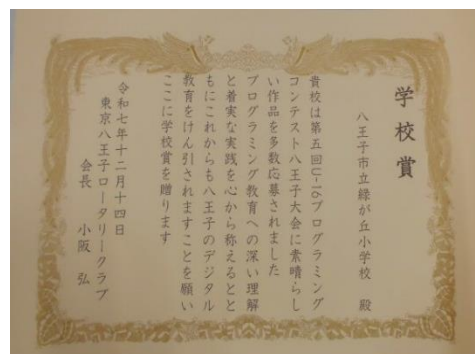 学校賞
八王子市立緑が丘小学校 殿
貴校は第五回U-16プログラミング
コンテスト八王子大会に素晴らし
い作品を多数応募されました
プログラミング教育への深い理解
と着実な実践を心から称えるとと
もにこれからも八王子のデジタル
教育をけん引されますことを願い
ここに学校賞を贈ります
令和七年十二月十四日
東京八王子ロータリークラブ
会長 小阪 弘